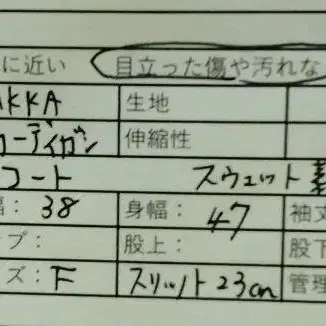 に近い 目立った傷や汚れな
KKA 生地
カーディガン 伸縮性
コート スウェット素
幅: 38 身幅: 47 袖丈
プ: 股上: 股下
ズ: F スリット23cm 管理